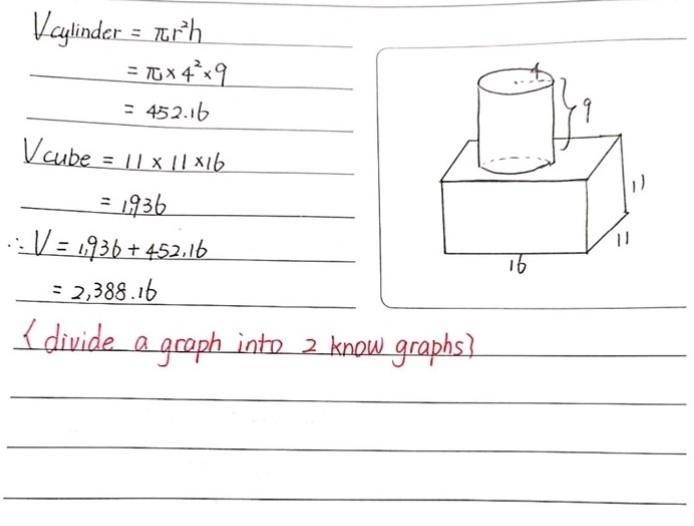 Vcylinder = πr²h
= π × 4² × 9
= 452.16
Vcube = 11 × 11 × 16
= 1,936
∴ V = 1,936 + 452.16
= 2,388.16
{divide a graph into 2 know graphs}
4
9
11
11
16